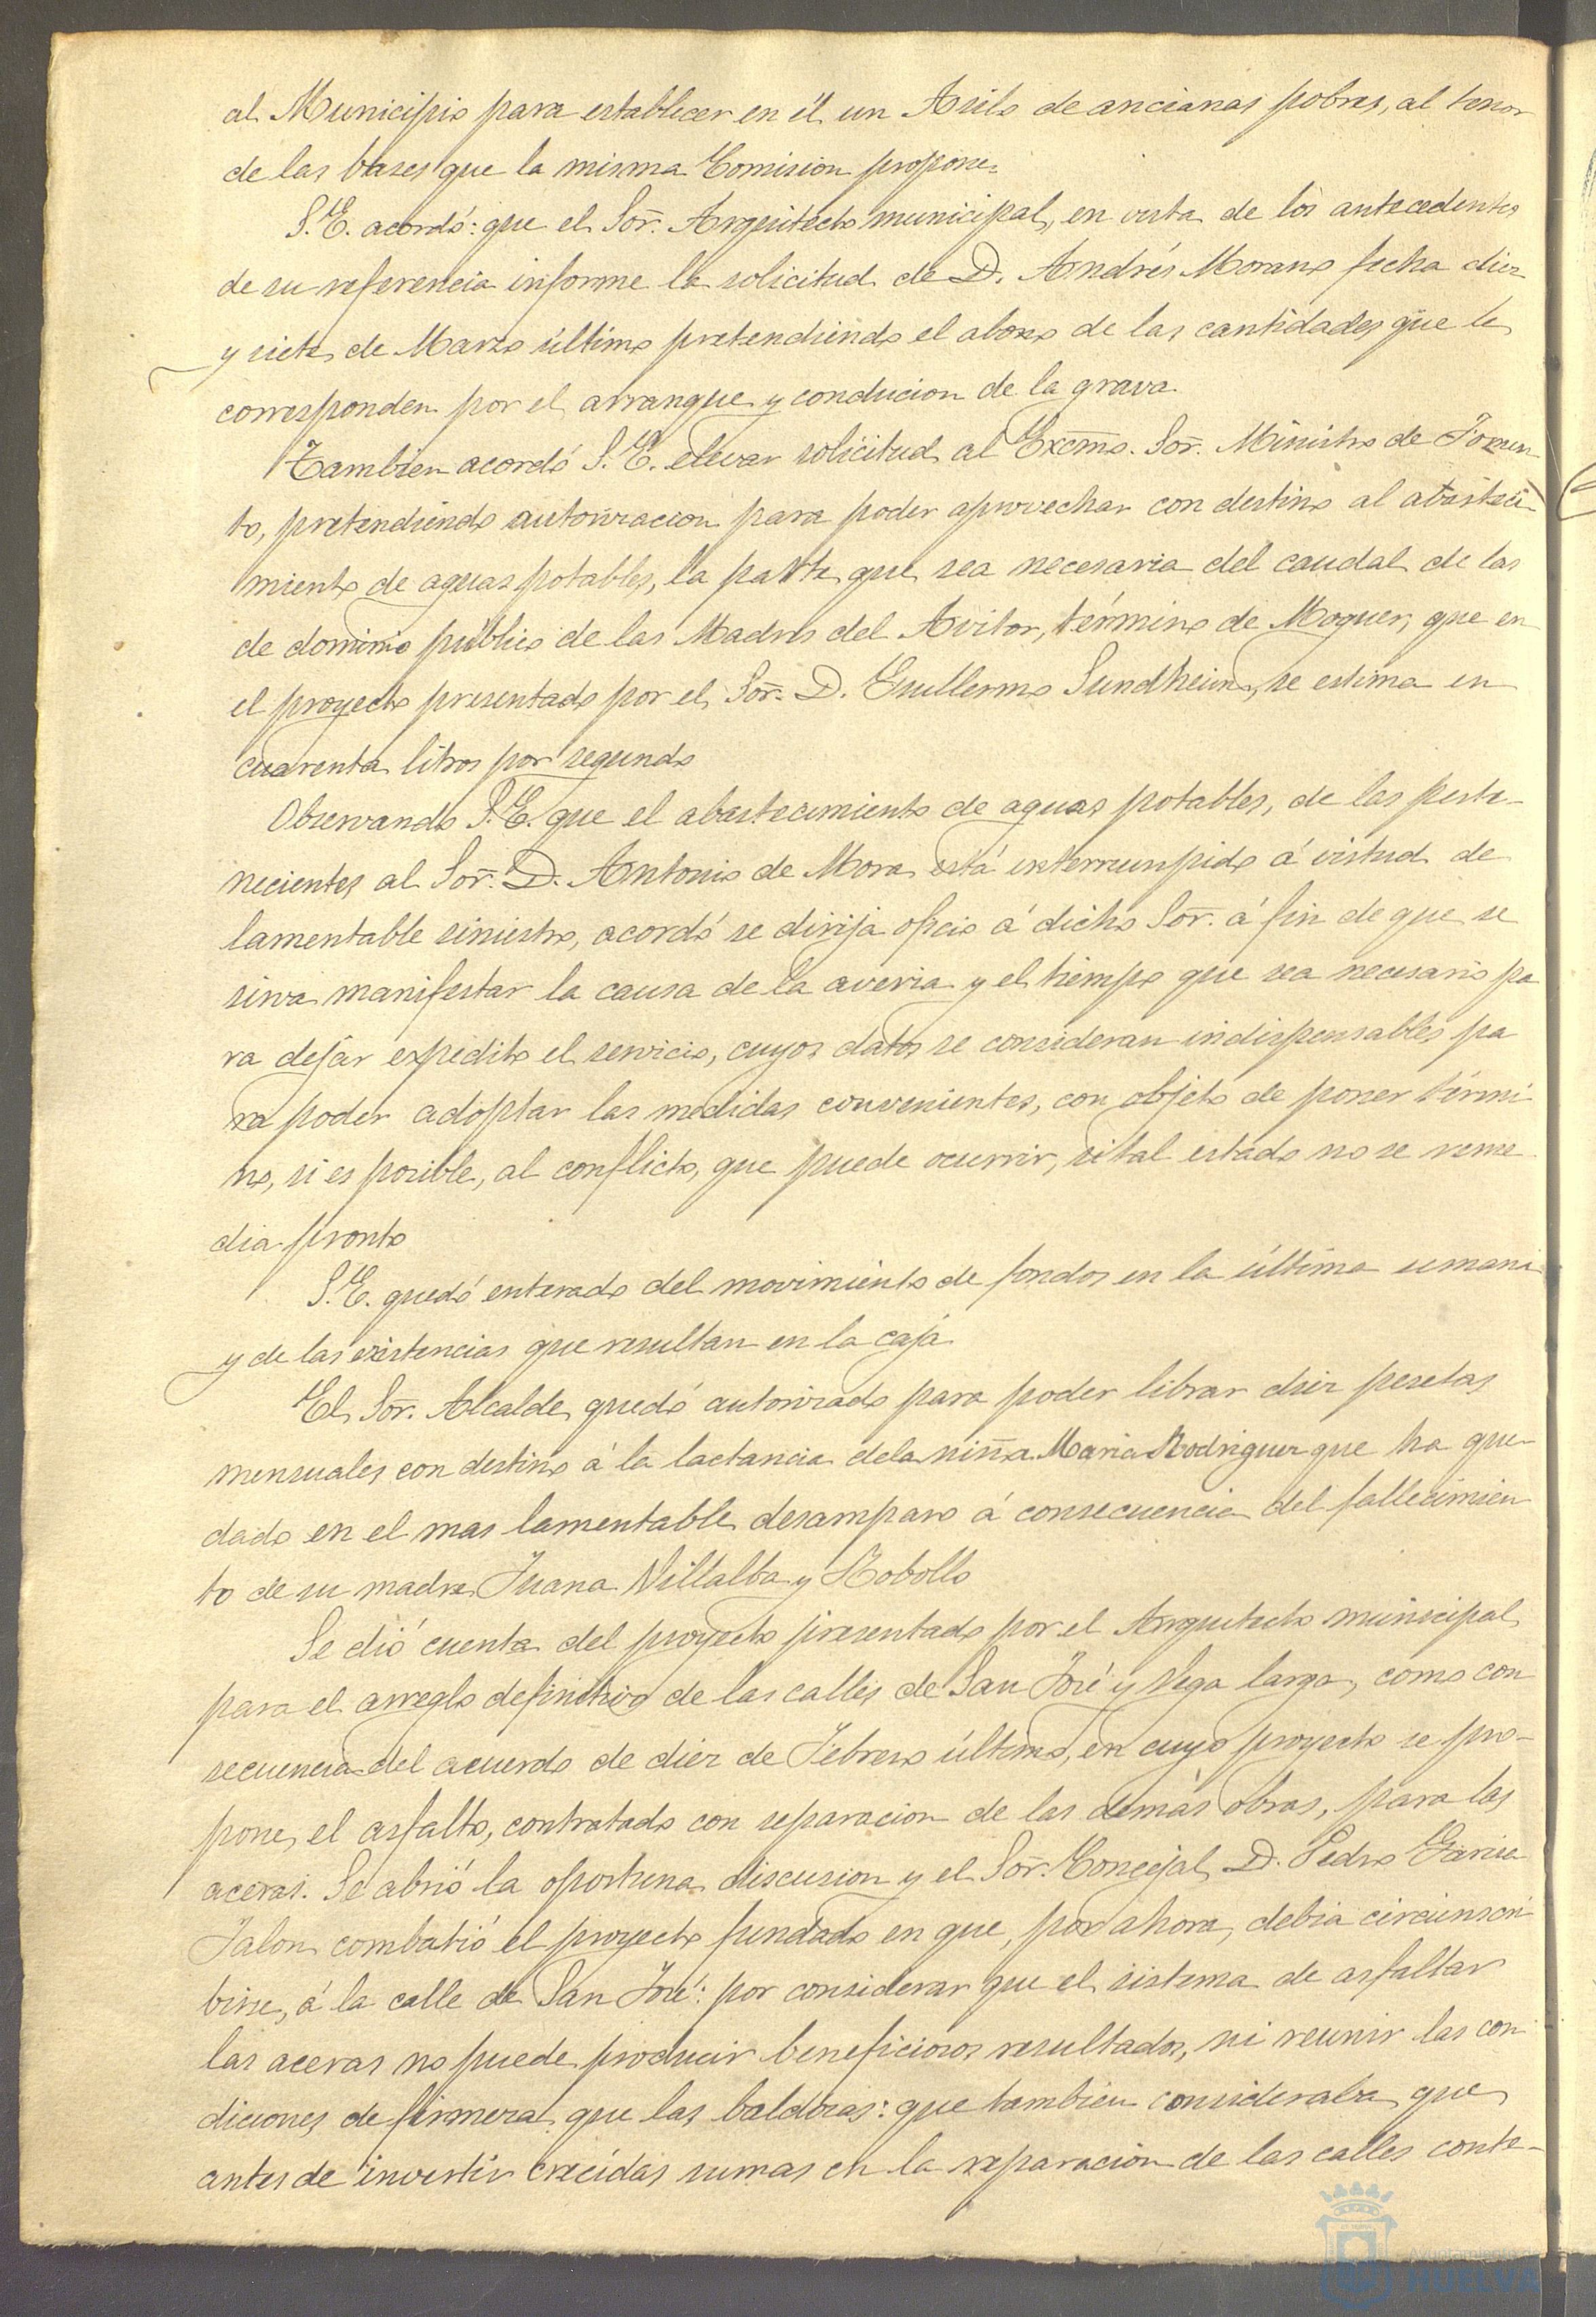 al Municipio para establecer en él un Asilo de ancianas pobres, al tenor
de las bases que la misma Comision propone.
S. E. acordó: que el Sor. Arquitecto municipal, en vista de los antecedentes
de su referencia informe la solicitud de D. Andrés Morano fecha diez
y siete de Marzo último pretendiendo el abono de las cantidades que le
corresponden por el arranque y conducion de la grava.
Tambien acordó S. E. elevar solicitud al Excmo. Sor. Ministro de Fomen-
to, pretendiendo autorizacion para poder aprovechar con destino al abasteci-
miento de aguas potables, la parte que sea necesaria del caudal de las
de dominio público de las Madres del Avitor, término de Moguer, que en
el proyecto presentado por el Sor. D. Guillermo Sundheim, se estima en
cuarenta litros por segundo
Observando S. E. que el abastecimiento de aguas potables, de las perte-
necientes al Sor. D. Antonio de Mora está interrumpido á virtud de
lamentable siniestro, acordó se dirija oficio á dicho Sor. á fin de que se
sirva manifestar la causa de la averia y el tiempo que sea necesario pa
ra dejar expedito el servicio, cuyos datos se consideran indispensables pa
ra poder adoptar las medidas convenientes, con objeto de poner térmi-
no, si es posible, al conflicto, que puede ocurrir, si tal estado no se reme
dia pronto
S. E. quedó enterado del movimiento de fondos en la última semana
y de las existencias que resultan en la caja
El Sor. Alcalde quedó autorizado para poder librar diez pesetas
mensuales con destino á la lactancia de la niña Maria Rodriguez que ha que-
dado en el mas lamentable desamparo á consecuencia del fallecimien
to de su madre Juana Villalba y Rebollo
Se dió cuenta del proyecto presentado por el Arquitecto municipal
para el arreglo definitivo de las calles de San José y Vega larga, como con
secuencia del acuerdo de diez de Febrero último, en cuyo proyecto se pro-
pone, el asfalto, contratado con separacion de las demás obras, para las
aceras. Se abrió la oportuna discusion y el Sor. Concejal D. Pedro Garcia
Jalon combatió el proyecto fundado en que, por ahora, debia circunscri
birse, á la calle de San José: por considerar que el sistema de asfaltar
las aceras no puede producir beneficiosos resultados, ni reunir las con
diciones de firmeza que las baldosas: que tambien consideraba que
antes de invertir crecidas sumas en la reparacion de las calles conte-
Ayuntamiento de
HUELVA